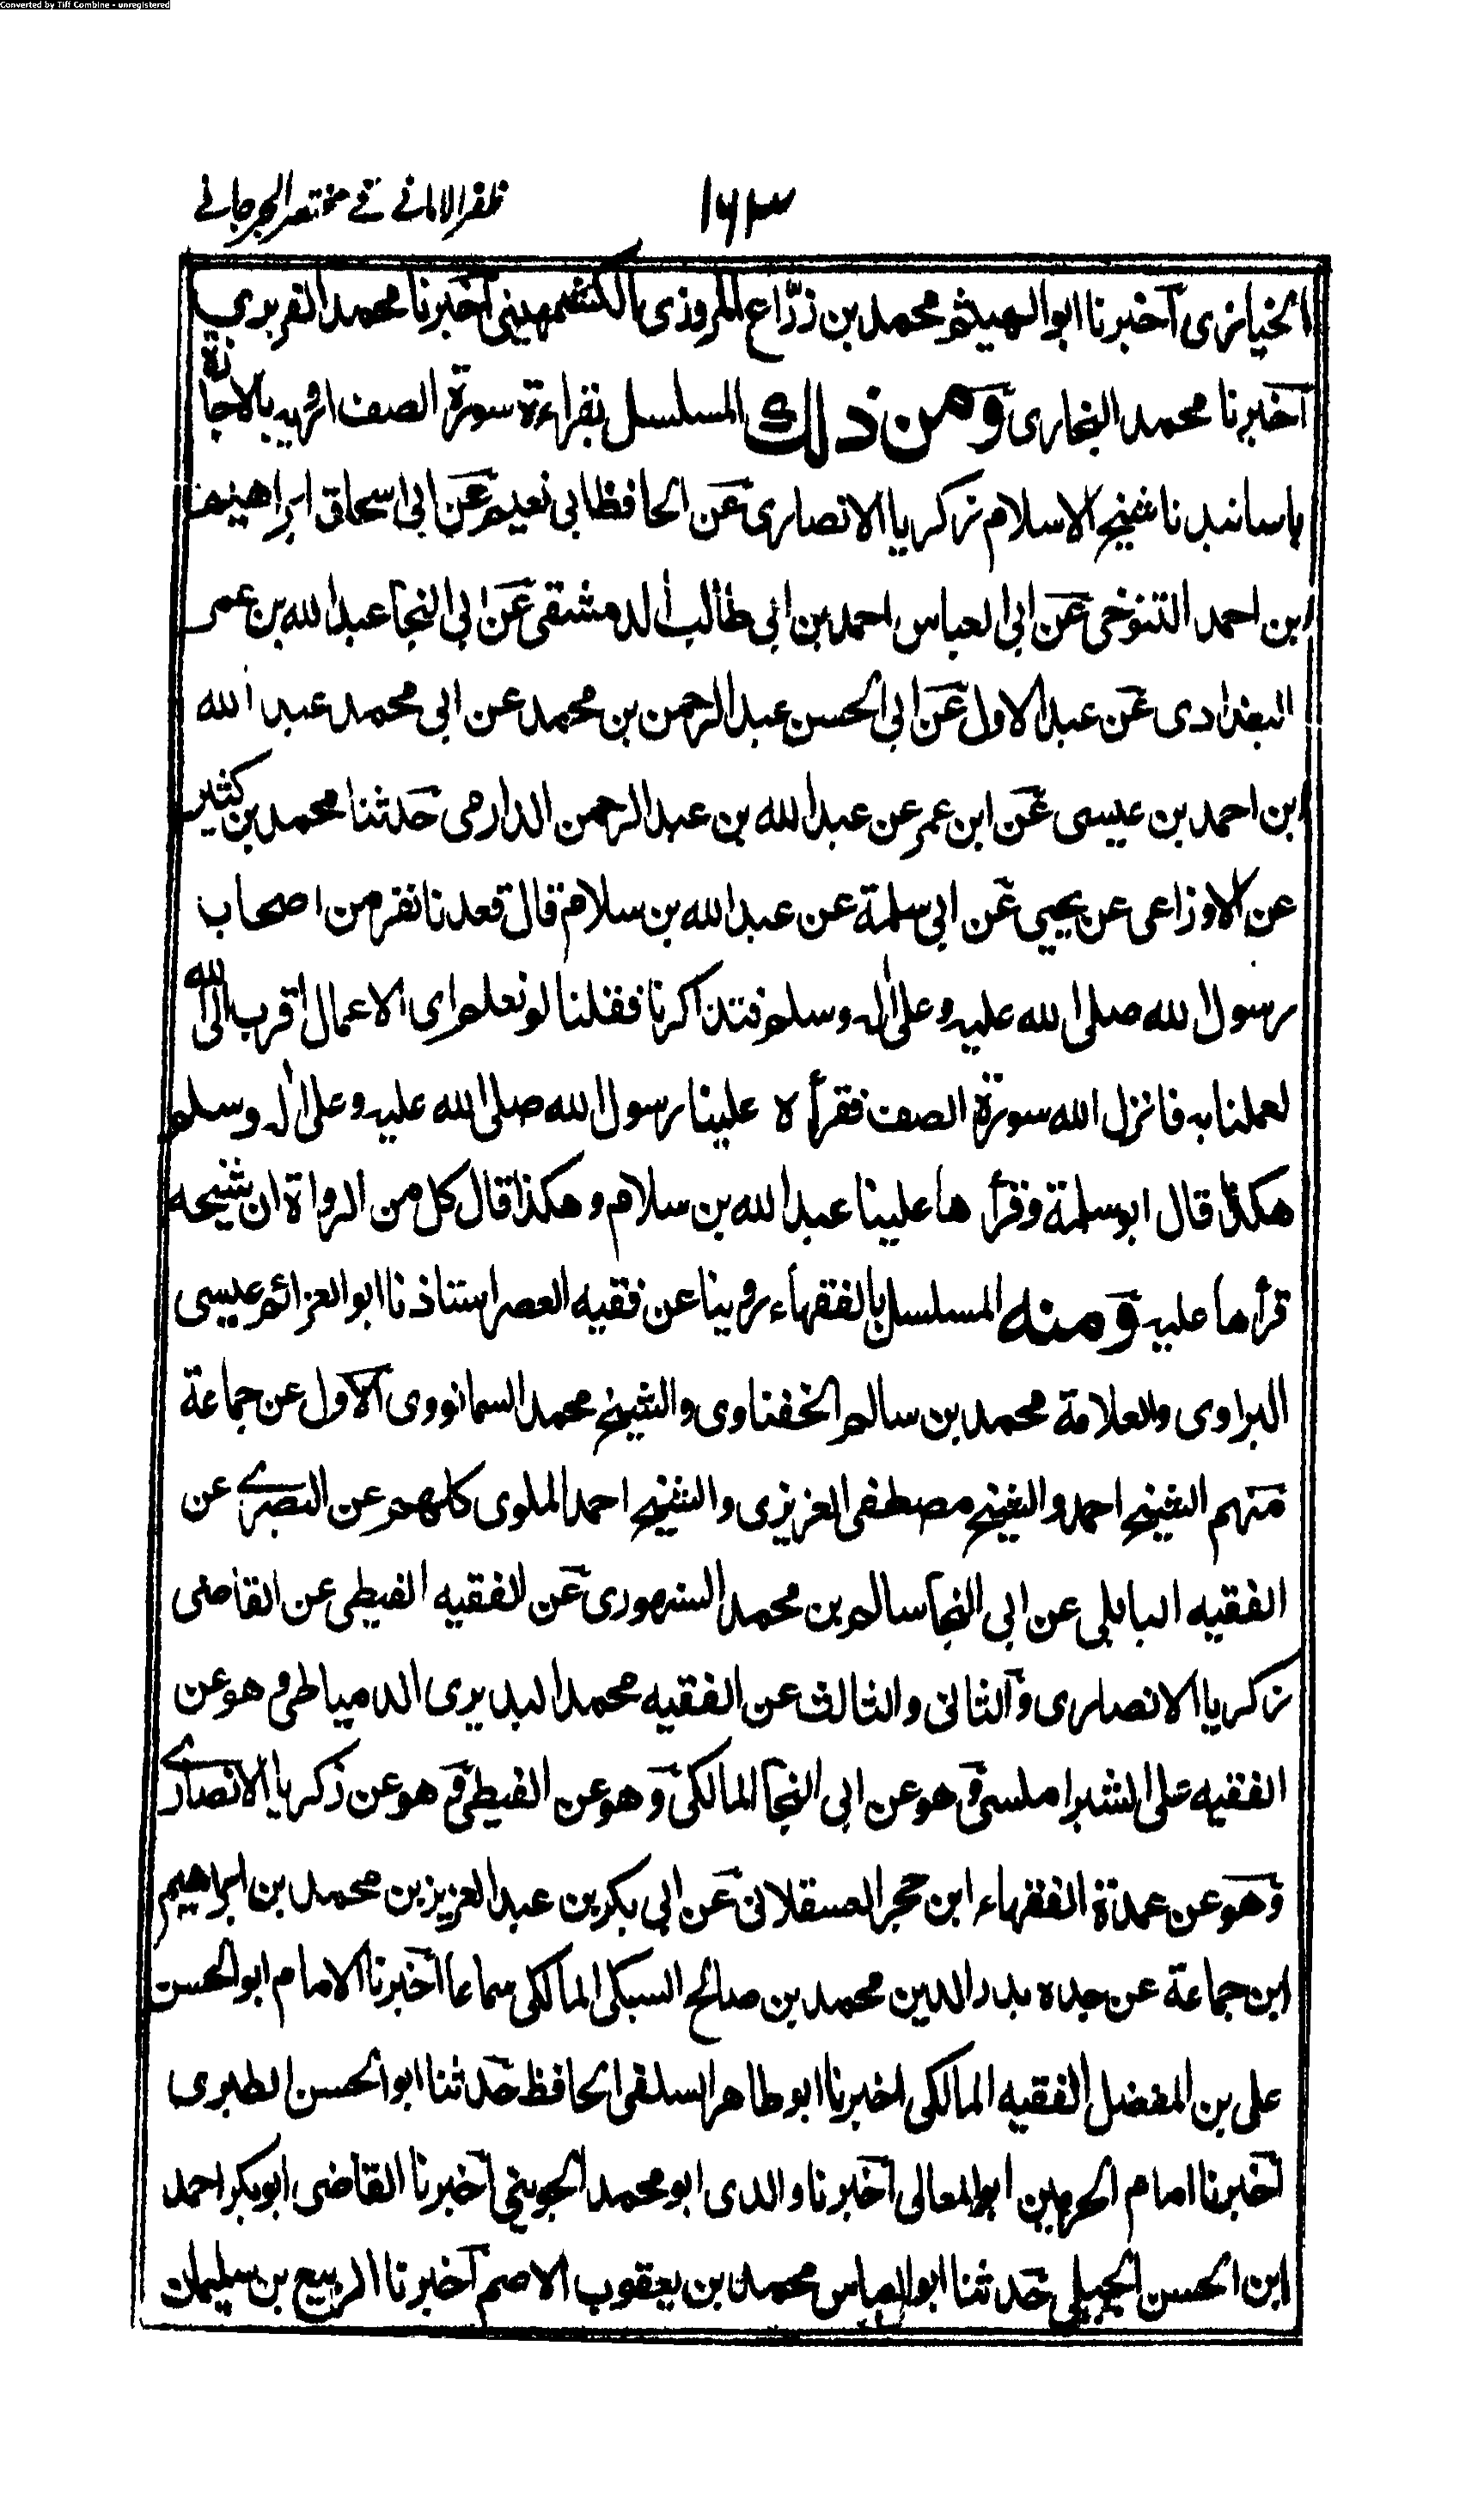 Converted by Tiff Combine - unregistered
١٦٣ ظفر الامانی فی مختصر الجرجانی
الخبازی أخبرنا ابو الهیثم محمد بن زرّاع المروزی الکشمیهنی أخبرنا محمد الفربری
أخبرنا محمد البخاری ومن ذلك المسلسل بقراءة سورة الصف ارویه بالاجازة
باسانید نا شیخ الاسلام زکریا الانصاری عن الحافظ ابی نعیم عن ابی اسحاق ابراهیم
ابن احمد التنوخی عن ابی العباس احمد بن ابی طالب الدمشقی عن ابی النجا عبد الله بن عمر
البغدادی عن عبد الاول عن ابی الحسن عبد الرحمن بن محمد عن ابی محمد عبد الله
ابن احمد بن عیسی عن ابن عمر عن عبد الله بن عبد الرحمن الدارمی حدثنا محمد بن کثیر
عن الاوزاعی عن یحیی عن ابی سلمة عن عبد الله بن سلام قال قعدنا نفر من اصحاب
رسول الله صلی الله علیه وعلی اله وسلم فتذاکرنا فقلنا لو نعلم ای الاعمال اقرب الی الله
لعملنا به فانزل الله سورة الصف فقرأ ه علینا رسول الله صلی الله علیه وعلی اله وسلم
هکذا قال ابو سلمة وقرأ ها علینا عبد الله بن سلام وهکذا قال کل من الرواة ان شیخه
قرأها علیه ومنه المسلسل بالفقهاء روینا عن فقیه العصر استاذنا ابو العزائم عیسی
البراوی والعلامة محمد بن سالم الحفناوی والشیخ محمد السمانووی الاول عن جماعة
منهم الشیخ احمد والشیخ مصطفی العزیزی والشیخ احمد الملوی کلهم عن البصری عن
الفقیه البابلی عن ابی النجا سالم بن محمد السنهوری عن الفقیه الغیطی عن القاضی
زکریا الانصاری والثانی والثالث عن الفقیه محمد البدیری الدمیاطی وهو عن
الفقیه علی الشبراملسی وهو عن ابی النجا المالکی وهو عن الغیطی وهو عن زکریا الانصاری
وهو عن عمدة الفقهاء ابن حجر العسقلانی عن ابی بکر بن عبد العزیز بن محمد بن ابراهیم
ابن جماعة عن جده بدر الدین محمد بن صالح السبکی المالکی سماعا اخبرنا الامام ابو الحسن
علی بن المفضل الفقیه المالکی اخبرنا ابو طاهر السلفی الحافظ حدثنا ابو الحسن الطبری
أخبرنا امام الحرمین ابو المعالی أخبرنا والدی ابو محمد الجوینی أخبرنا القاضی ابو بکر احمد
ابن الحسن الجیلی حدثنا ابو العباس محمد بن یعقوب الاصم أخبرنا الربیع بن سلیمان